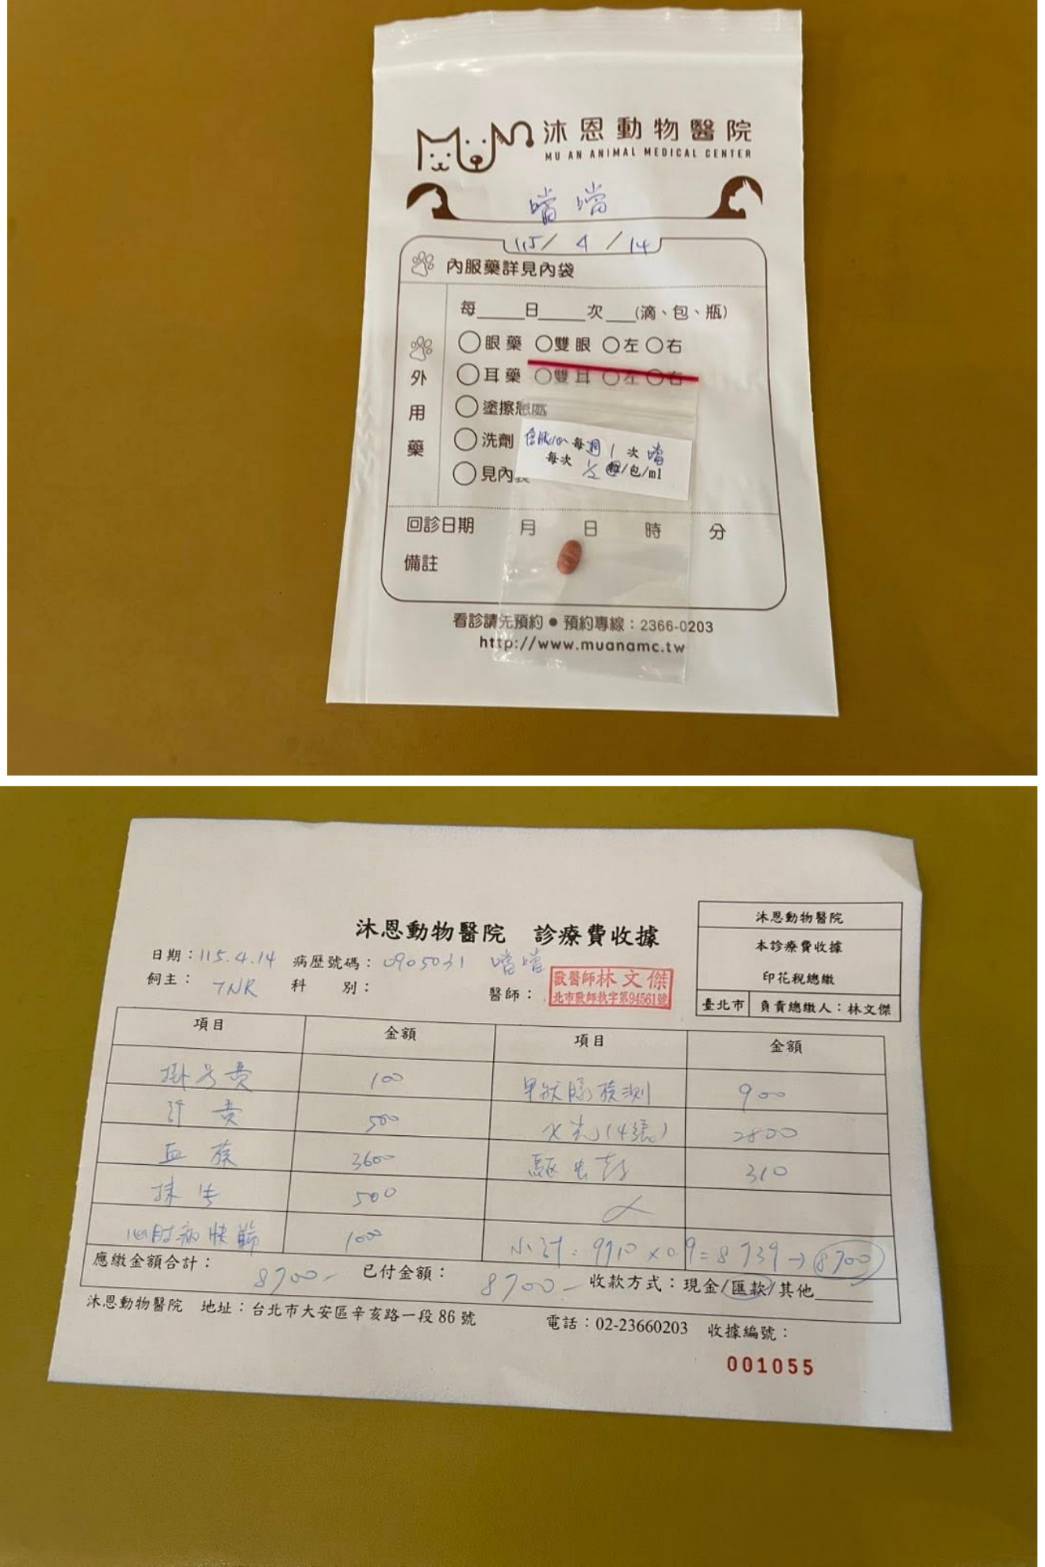 沐恩動物醫院
MU AN ANIMAL MEDICAL CENTER
噹噹
115/ 4 /14
內服藥詳見內袋
外用藥
每____日____次___(滴、包、瓶)
眼藥 雙眼 左 右
耳藥 雙耳 左 右
塗擦患處
洗劑
見內
每週 1 次 噹
每次 1/2 /包/ml
回診日期 月 日 時 分
備註
看診請先預約 • 預約專線：2366-0203
http://www.muanamc.tw
沐恩動物醫院 診療費收據
沐恩動物醫院
本診療費收據
印花稅總繳
臺北市 負責總繳人：林文傑
日期：115.4.14 病歷號碼：0905031 噹噹
飼主：TNR 科 別： 醫師：
獸醫師林文傑
北市獸師執字第94561號
項目 金額 項目 金額
掛号費 100 甲狀腺檢測 900
診費 500 X光(4張) 2800
血檢 3600 驅虫藥 310
採生 500
1000
小計：9710 x 0.9=8739→8700
應繳金額合計：8700- 已付金額：8700- 收款方式：現金/匯款/其他______
沐恩動物醫院 地址：台北市大安區辛亥路一段86號 電話：02-23660203 收據編號：
001055